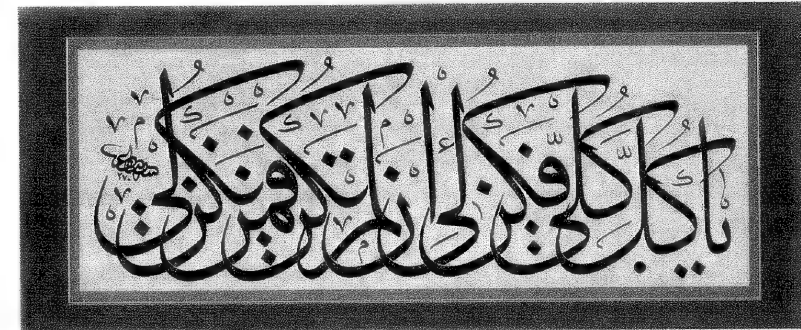 يا كُلَّ كُلّي فكن لي إن لم تكن فمن لي